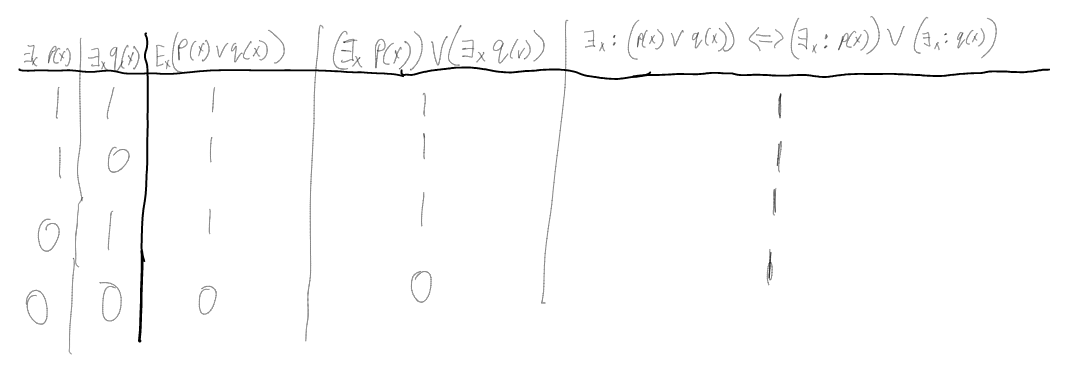 ∃ₓ P(x) | ∃ₓ q(x) | Eₓ(P(x) ∨ q(x)) | (∃ₓ P(x)) ∨ (∃ₓ q(x)) | ∃ₓ: (p(x) ∨ q(x)) <=> (∃ₓ: p(x)) ∨ (∃ₓ: q(x))
1 1 1 1 1
1 0 1 1 1
0 1 1 1 1
0 0 0 0 1